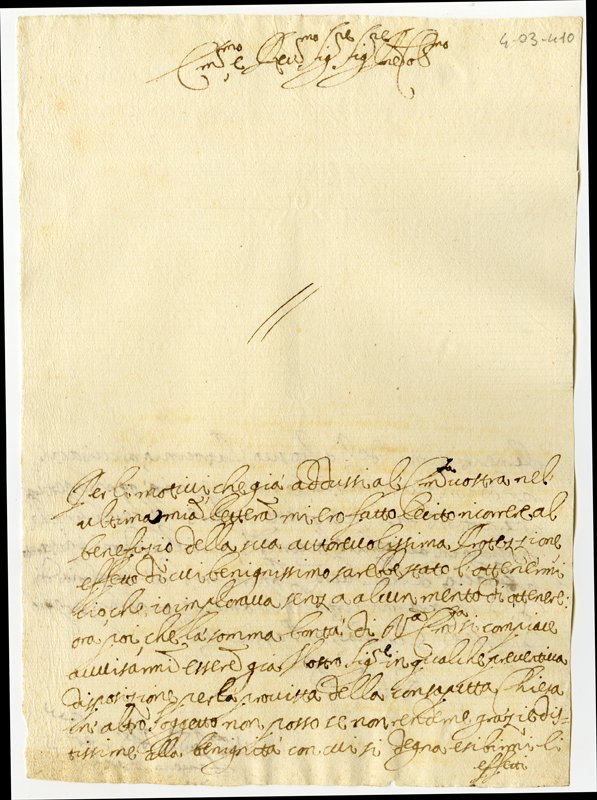 4-03-410
Em.mo e Rev.mo Sig.re Sig.re P.ron Col.mo
Per li motivi, che già addussi al Em.za vostra nel
ultima mia lettera mi ero fatto lecito ricorrere al
beneficio della sua autorevolissima Protezzione
effetto di cui benignissimo sarebbe stato l'ottenermi
ciò, che io imploravo senza alcun merito di ottenere:
ora poi, che la somma bontà di V.ra Em.za si compiace
avvisarmi essere già Nostro Sig.re in qualche preventiva
disposizione per la provista della consaputa Chiesa
in altro soggetto non posso se non renderne grazie di-
stissime alla benignità con cui si degna esibirmi li
effetti